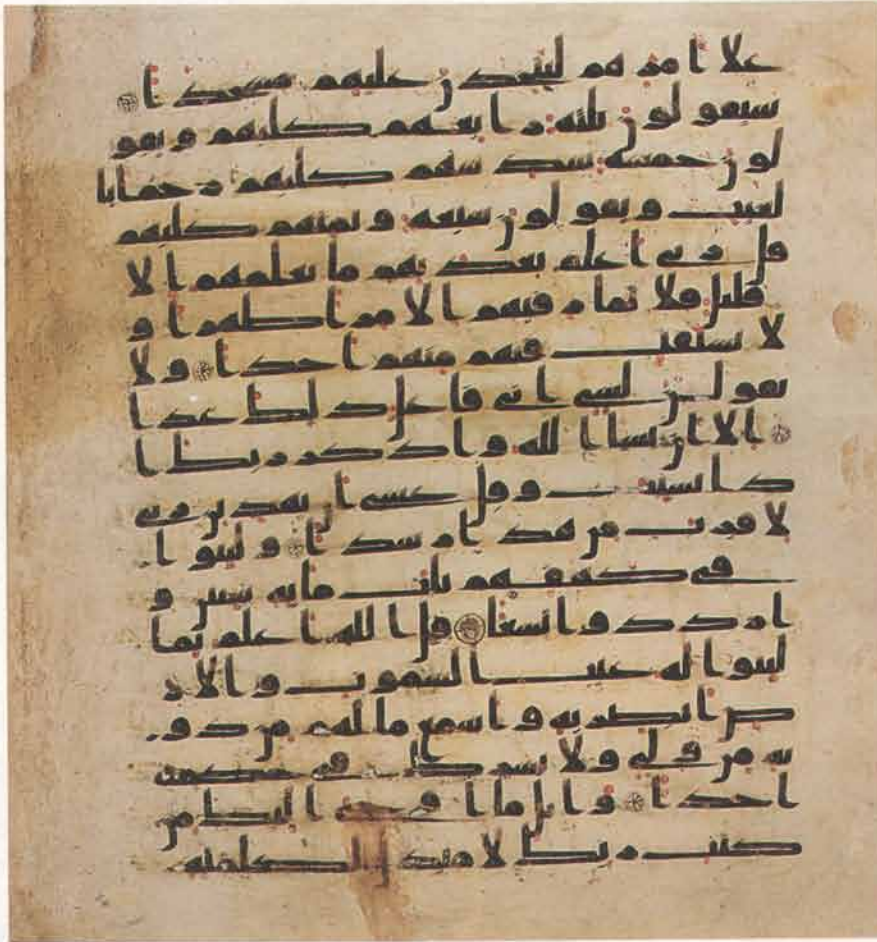 علا امرهم لنتخذن عليهم مسجدا
سيقولون ثلثة رابعهم كلبهم ويقو
لون خمسة سدسهم كلبهم رجما با
لغيب ويقولون سبعة وثمنهم كلبهم
قل ربي اعلم بعدتهم ما يعلمهم الا
قليل فلا تمار فيهم الا مرا ظهرا و
لا تستفت فيهم منهم احدا ولا
تقولن لشي اني فاعل ذلك غدا
الا ان يشا الله واذكر ربك ا
ذا نسيت وقل عسى ان يهدين ربي
لاقرب من هذا رشدا ولبثوا
في كهفهم ثلث مايه سنين و
ازددوا تسعا قل الله اعلم بما
لبثوا له غيب السموت والار
ض ابصر به واسمع ما لهم من دو
نه من ولي ولا يشرك في حكمه
احدا واتل ما اوحي اليك من
كتب ربك لا مبدل لكلمته